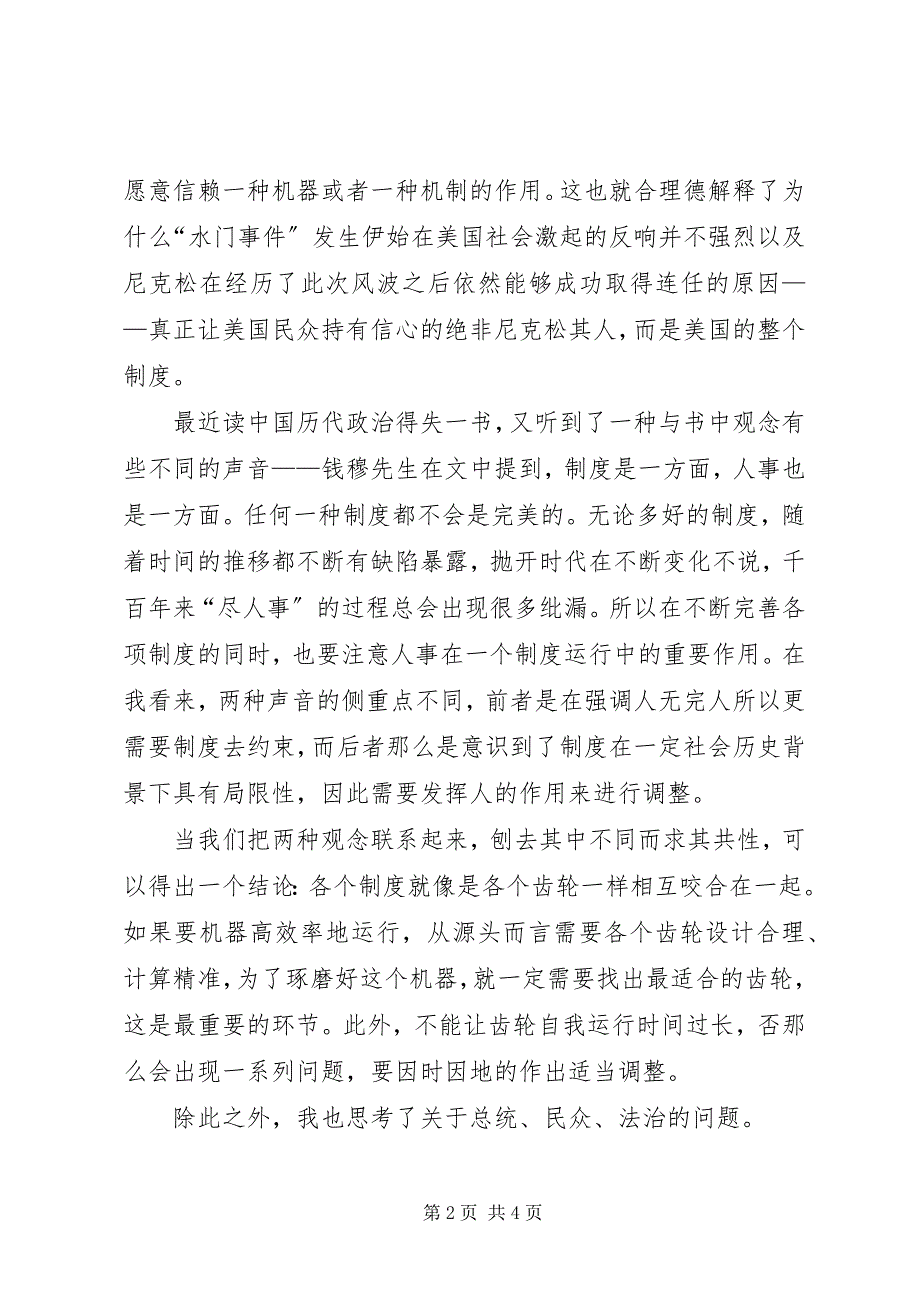 愿意信赖一种机器或者一种机制的作用。这也就合理德解释了为
什么“水门事件〞发生伊始在美国社会激起的反响并不强烈以及
尼克松在经历了此次风波之后依然能够成功取得连任的原因—
—真正让美国民众持有信心的绝非尼克松其人，而是美国的整个
制度。
最近读中国历代政治得失一书，又听到了一种与书中观念有
些不同的声音——钱穆先生在文中提到，制度是一方面，人事也
是一方面。任何一种制度都不会是完美的。无论多好的制度，随
着时间的推移都不断有缺陷暴露，抛开时代在不断变化不说，千
百年来“尽人事〞的过程总会出现很多纰漏。所以在不断完善各
项制度的同时，也要注意人事在一个制度运行中的重要作用。在
我看来，两种声音的侧重点不同，前者是在强调人无完人所以更
需要制度去约束，而后者那么是意识到了制度在一定社会历史背
景下具有局限性，因此需要发挥人的作用来进行调整。
当我们把两种观念联系起来，刨去其中不同而求其共性，可
以得出一个结论：各个制度就像是各个齿轮一样相互咬合在一起。
如果要机器高效率地运行，从源头而言需要各个齿轮设计合理、
计算精准，为了琢磨好这个机器，就一定需要找出最适合的齿轮，
这是最重要的环节。此外，不能让齿轮自我运行时间过长，否那
么会出现一系列问题，要因时因地的作出适当调整。
除此之外，我也思考了关于总统、民众、法治的问题。
第 2 页 共 4 页